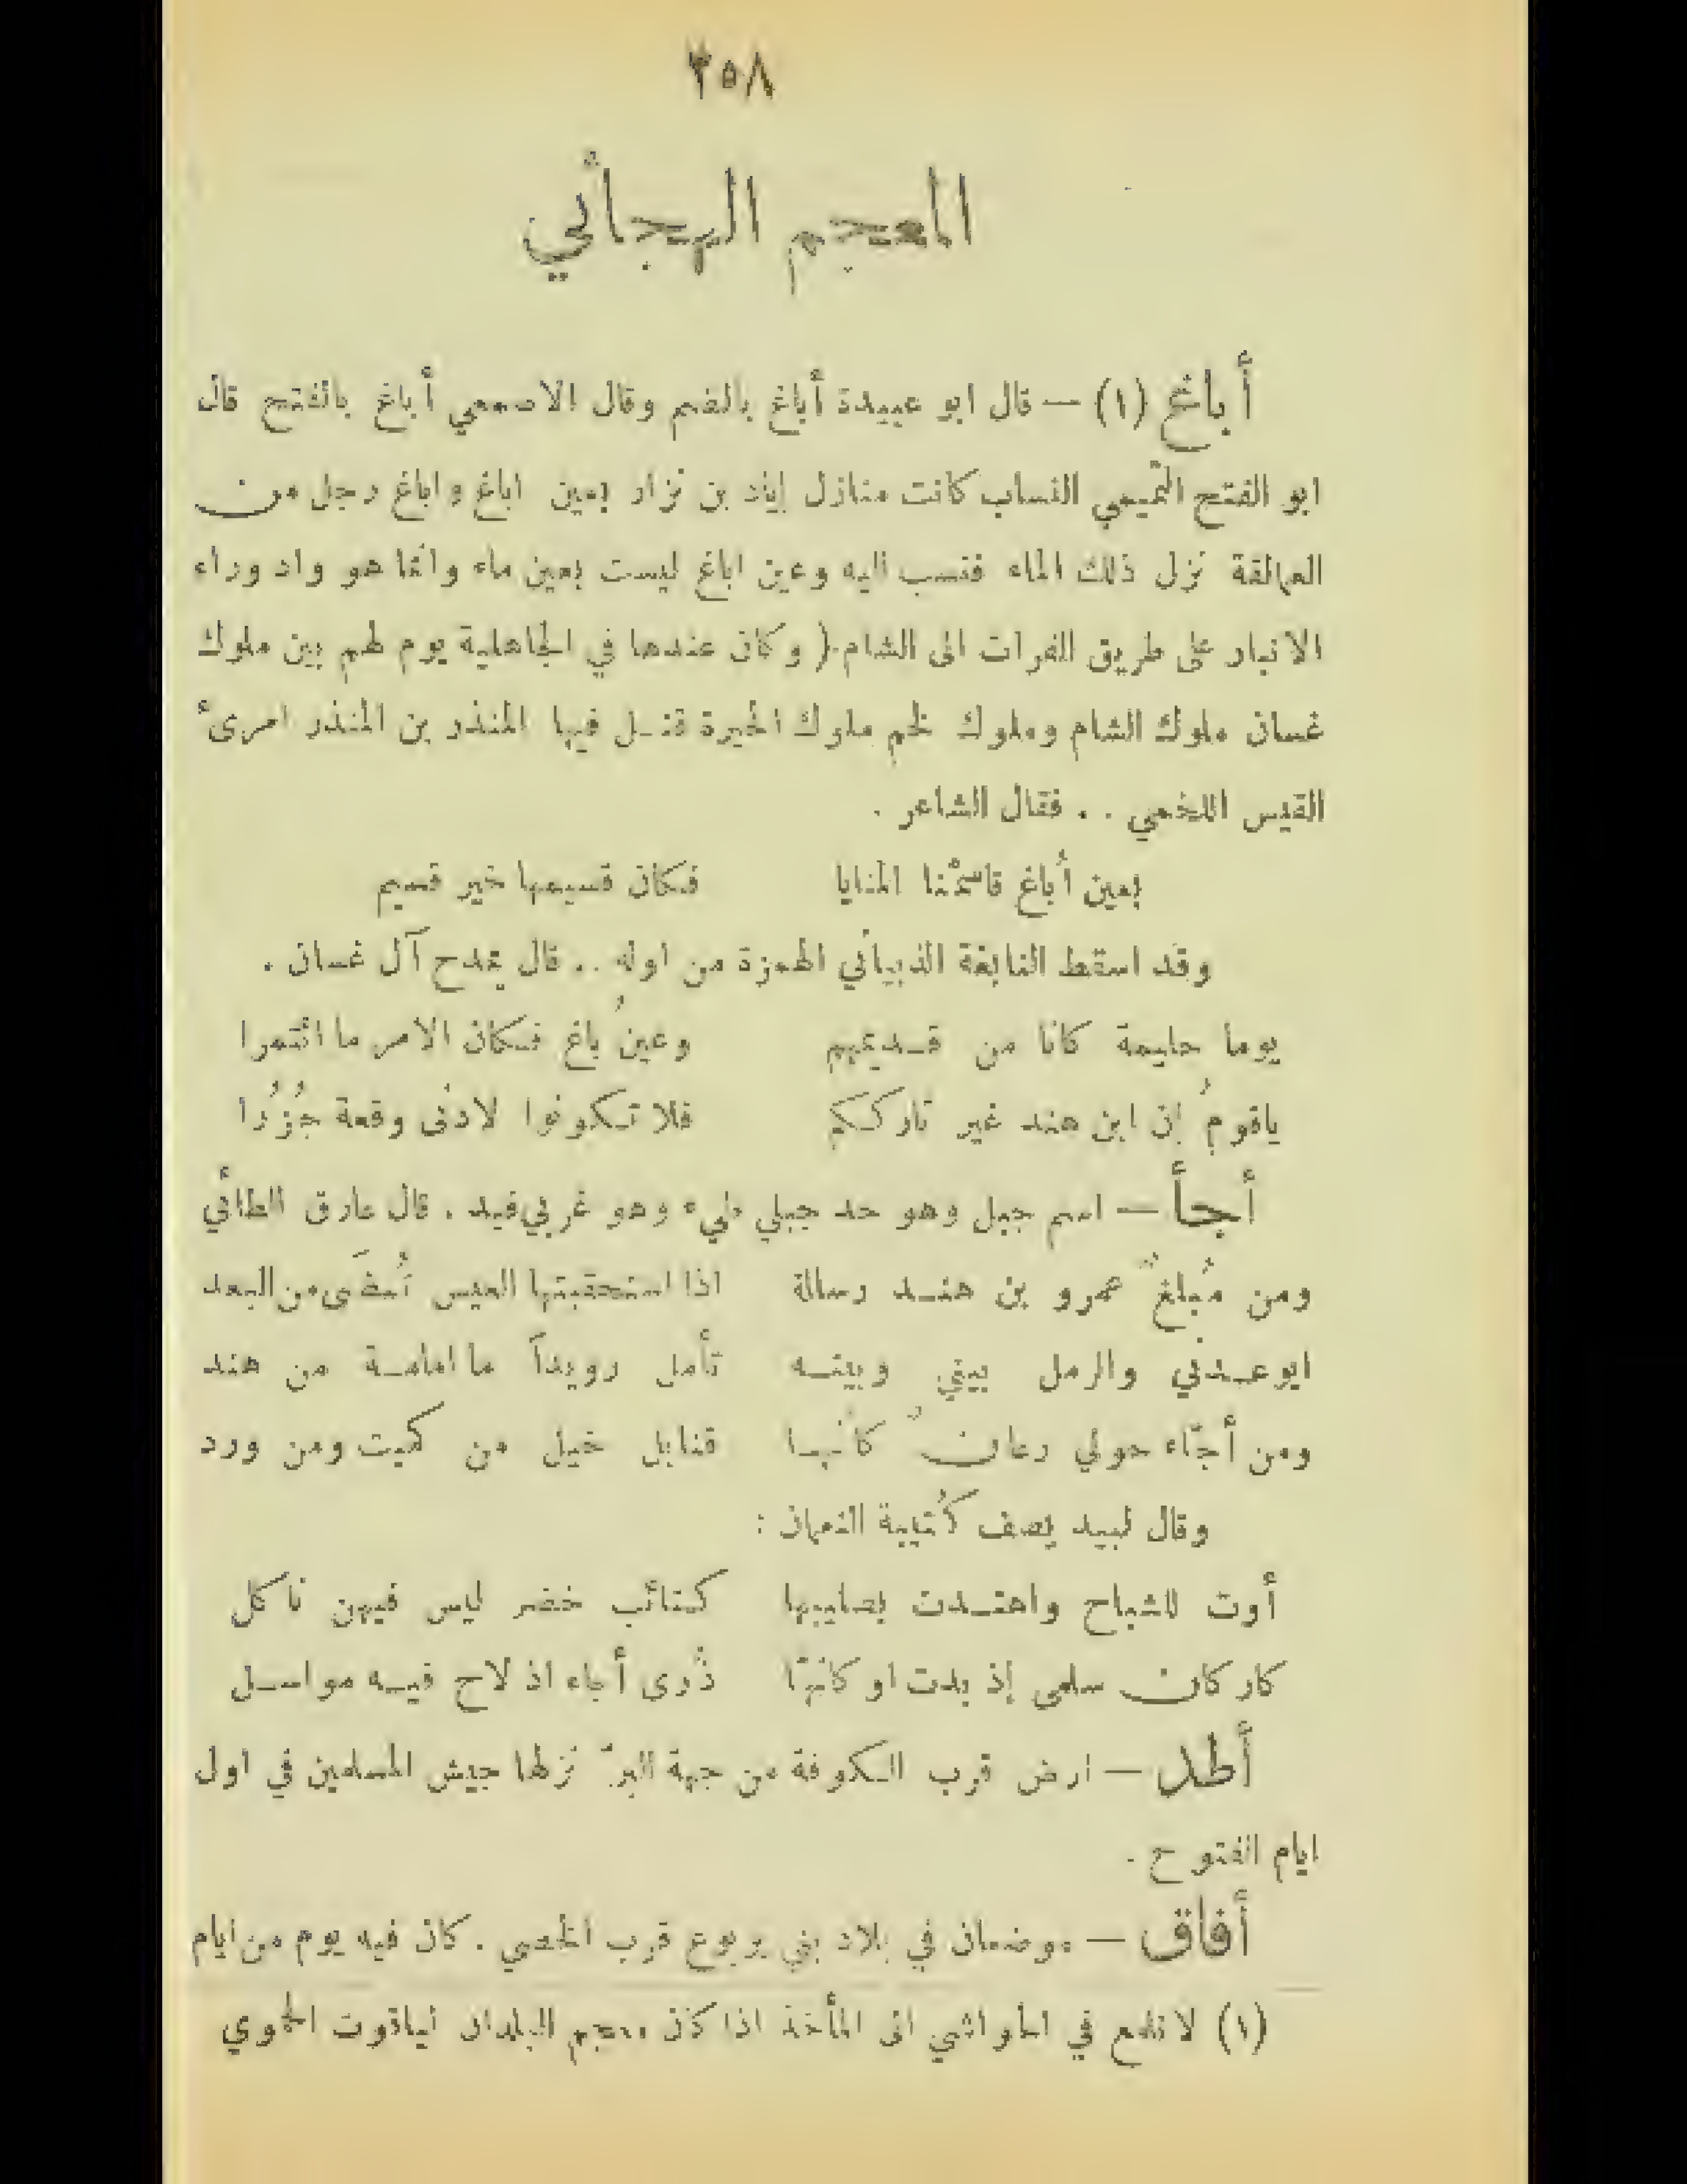 ٣٥٨
المعجم الهجائي
أباغ (١) — قال ابو عبيدة أباغ بالضم وقال الاصمعي أباغ بالفتح قال
ابو الفتح التّميمي النساب كانت منازل إياد بن نزار بعين اباغ واباغ رجل من
العمالقة نزل ذلك الماء فنسب اليه وعين اباغ ليست بعين ماء وانما هو واد وراء
الانبار على طريق الفرات الى الشام.( وكان عندها في الجاهلية يوم لهم بين ملوك
غسان ملوك الشام وملوك لخم ملوك الحيرة قتـل فيها المنذر بن المنذر امرىء
القيس اللخمي . . فقال الشاعر .
بعين أباغ قاسمْنا المنايا فكان قسيمها خير قسيم
وقد اسقط النابغة الذبياني الهمزة من اوله .. قال يمدح آل غسان .
يوما حليمة كانا من قـديمهم وعينُ باغ فكان الامر ما ائتمرا
ياقومُ إن ابن هند غير تارككم فلا تكونوا لادنى وقعة جُزُرا
أجأ — اسم جبل وهو حد جبلي طيء وهو غربي فيد . قال عارق الطائي
ومن مُبلغٌ عمرو بن هنـد رسالة اذا استحقبتها العيس تُنضَى من البعد
ايوعـدني والرمل بيني وبينـه تأمل رويداً ما امامـة من هند
ومن أجّاء حولي رعانٌ كأنهـا قنابل خيل من كميت ومن ورد
وقال لبيد يصف كُتيبة النعمان :
أوت للشباح واهتـدت بصليبها كتائب خضر ليس فيهن ناكل
كاركان سلمى إذ بدت او كانهّا ذُرى أجاء اذ لاح فيـه مواسـل
أطد — ارض قرب الكوفة من جهة البرّ نزلها جيش المسلمين في اول
ايام الفتوح .
أفاق — موضعان في بلاد بني يربوع قرب الخصي . كان فيه يوم من ايام
(١) لا نلمع في الحواشي الى المأخذ اذا كان معجم البلدان لياقوت الحموي